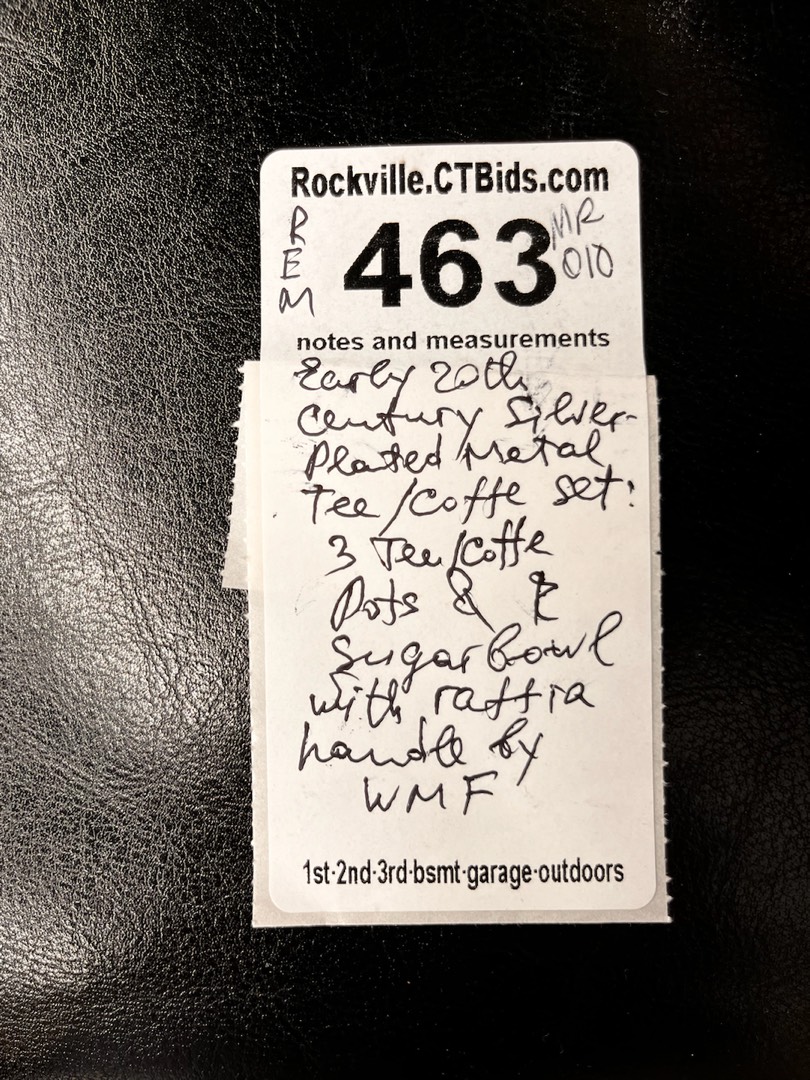 Rockville.CTBids.com
REM
463
MR
010
notes and measurements
Early 20th
Century Silver-
Plated Metal
Tee/Coffe set:
3 Tee/Coffe
Pots &
Sugar bowl
with raffia
handle by
WMF
1st·2nd·3rd·bsmt·garage·outdoors